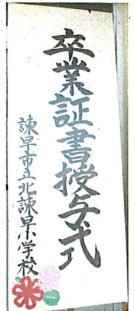 卒業証書授与式
諫早市立北諫早小学校